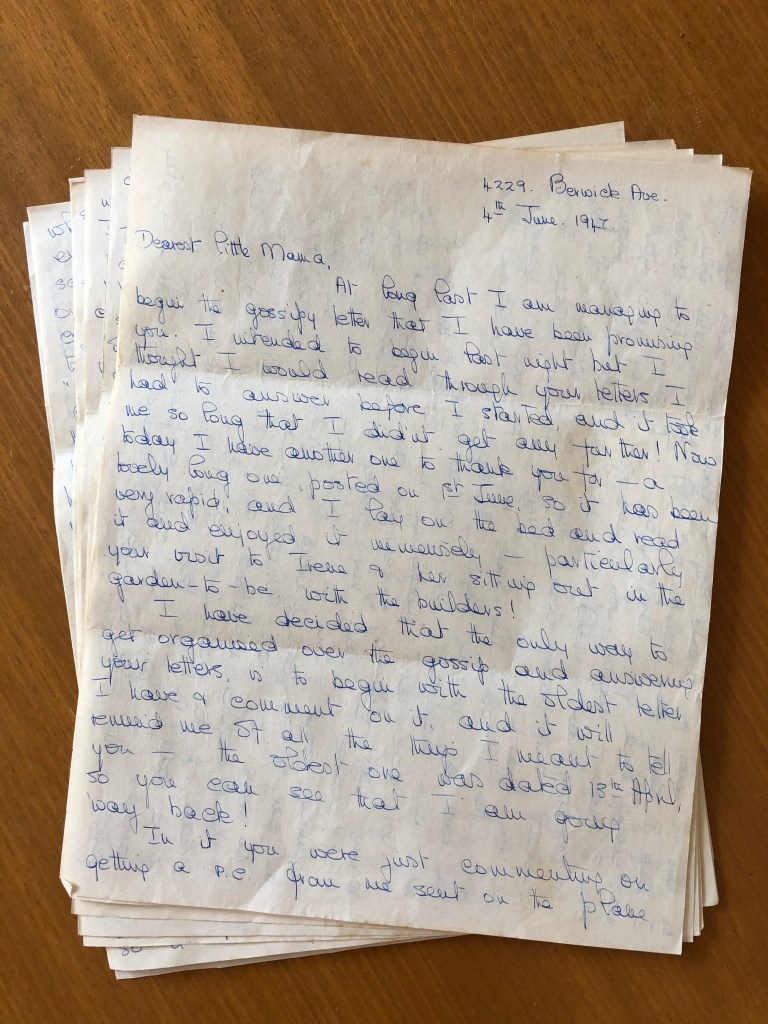 4229. Berwick Ave.
4th June. 1947
Dearest little Mama,
At long last I am managing to
begin the gossipy letter that I have been promising
you. I intended to begin last night but I
thought I would read through your letters I
had to answer before I started and it took
me so long that I didn't get any further! Now
today I have another one to thank you for — a
lovely long one posted on 1st June, so it has been
very rapid, and I lay on the bed and read
it and enjoyed it immensely — particularly
your visit to Irene & her sitting out in the
garden-to-be with the builders!
I have decided that the only way to
get organised over the gossip and answering
your letters, is to begin with the oldest letter
I have & comment on it, and it will
remind me of all the things I meant to tell
you — the oldest one was dated 13th April,
so you can see that I am going
way back!
In it you were just commenting on
getting a p.c. from me sent on the plane